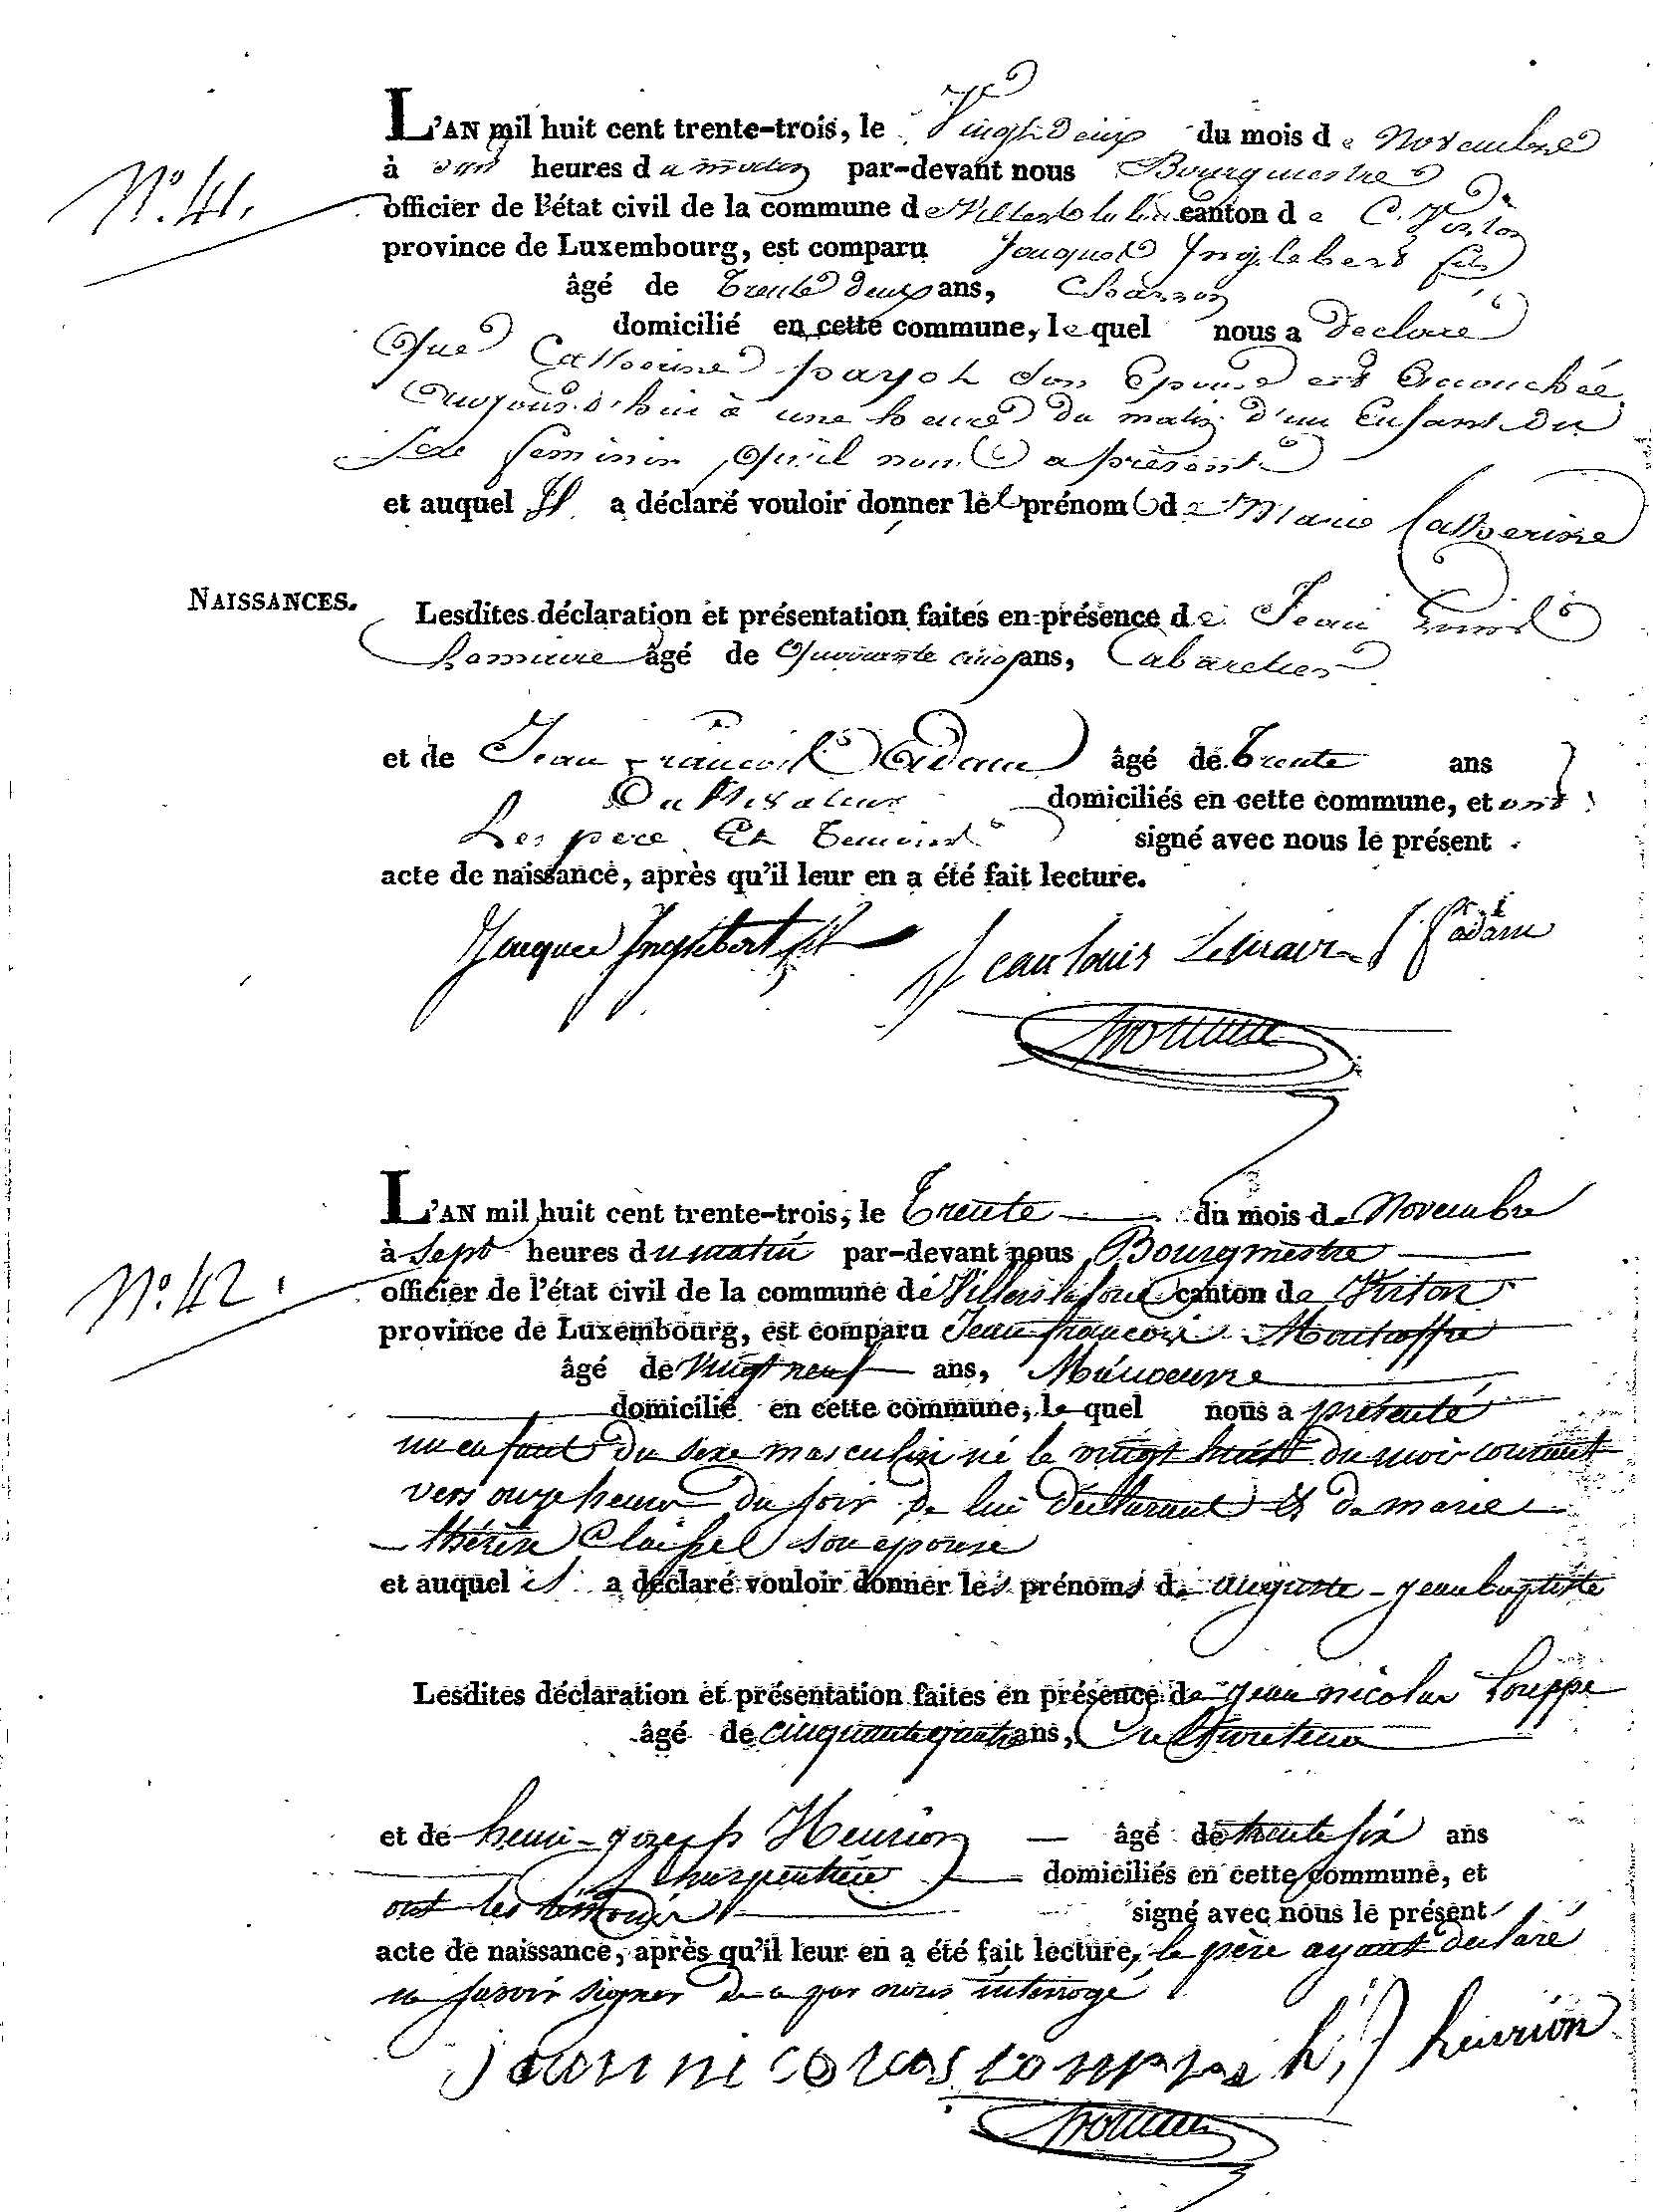 L'AN mil huit cent trente-trois, le Vingt Deux du mois de Novembre
N.º 41.
à heures du matin par-devant nous Bourgmestre
officier de l'état civil de la commune de canton de Virton
province de Luxembourg, est comparu Jacques Inglebert fils
âgé de Trente Deux ans, Charron
domicilié en cette commune, le quel nous a Declaré
Que Catherine payot Son Epouse est Accouchée
Aujourd'hui à une heure Du matin D'un Enfant Du
Sexe feminin Qu'il nous a présenté
et auquel Il a déclaré vouloir donner les prénoms de Marie Catherine
NAISSANCES.
Lesdites déclaration et présentation faites en présence de Jean Louis
âgé de Quarante cinq ans, Cabaretier
et de Jean François Adam âgé de Trente ans
Cultivateur domiciliés en cette commune, et ont
Les pere Et Temoins signé avec nous le présent
acte de naissance, après qu'il leur en a été fait lecture.
Jacques Inglebert fils Jean louis Lemaire J. f. adam
L'AN mil huit cent trente-trois, le Trente du mois de Novembre
à Sept heures du matin par-devant nous Bourgmestre
N.º 42.
officier de l'état civil de la commune de Villers la loue canton de Virton
province de Luxembourg, est comparu Jean françois
âgé de Vingt neuf ans, Manoeuvre
domicilié en cette commune, le quel nous a présenté
un enfant du sexe masculin né le vingt huit du mois courant
vers onze heures du soir de lui déclarant et de marie
thérèse son épouse
et auquel il a déclaré vouloir donner les prénoms de auguste-jean baptiste
Lesdites déclaration et présentation faites en présence de jean nicolas Louppe
âgé de cinquante quatre ans, Cultivateur
et de henri-joseph Henrion âgé de trente six ans
Charpentier domiciliés en cette commune, et
ont les témoins signé avec nous le présent
acte de naissance, après qu'il leur en a été fait lecture, le père ayant déclaré
ne savoir signer de ce par nous interrogé
jean nicolas louppe h. J henrion